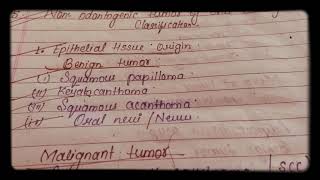 5. Non odontogenic tumor of
Classification
1. Epithelial tissue origin
Benign tumor:
(i) Squamous papilloma
(ii) Keratocanthoma
(iii) Squamous acanthoma
(iv) Oral nevi / Nevus
Malignant tumor
(SCC)